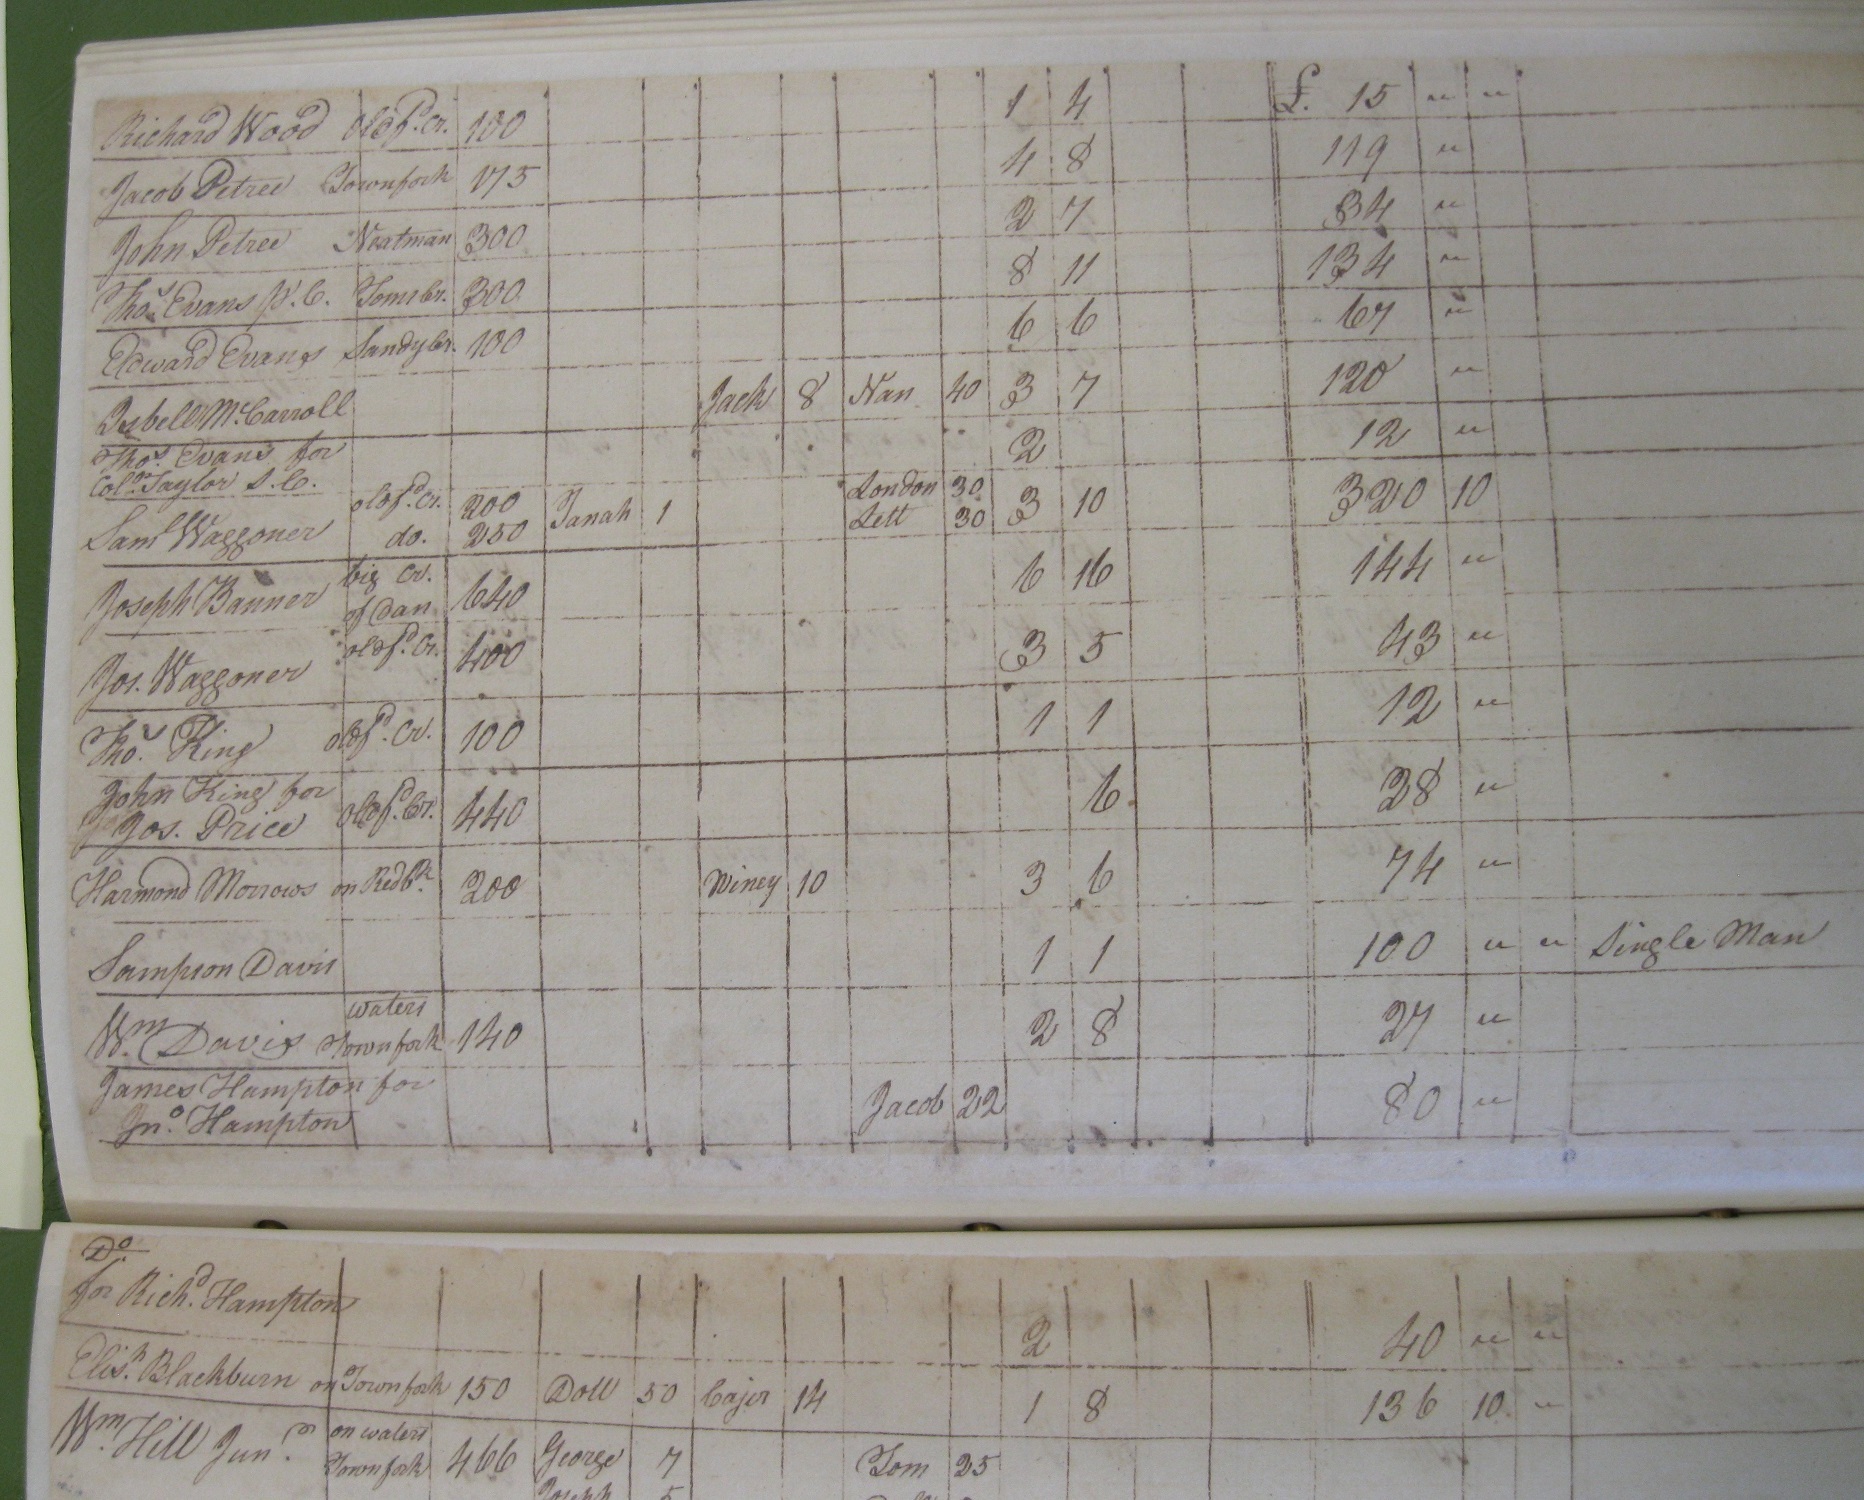 Richard Wood oldfd. Cr. 100 1 4 £. 15 " "
Jacob Petree Townfork 175 4 8 119 "
John Petree Neatman 300 2 7 84 "
Thos. Evans p. C. Toms Cr. 300 8 11 134 "
Edward Evans Sandy Cr. 100 6 6 67 "
Isbell McCarroll Jack 8 Nan 40 3 7 120 "
Thos. Evans for 2 12 "
Colo. Taylor S. C.
Saml Waggoner oldfd. Cr. 200 Tanah 1 London 30 3 10 320 10
do. 250 Lett 30
Joseph Banner big Cr. 640 6 16 144 "
of Dan
Jos. Waggoner oldfd. Cr. 400 3 5 43 "
Thos. King oldfd. Cr. 100 1 1 12 "
John King for
Jos. Price oldfd. Cr. 440 6 28 "
Harmond Morrows on Red Bk. 200 Winey 10 3 6 74 "
Sampson Davis 1 1 100 " " Single Man
waters
Wm. Davis Townfork 140 2 8 27 "
James Hampton for
Jno. Hampton Jacob 22 80 "
Do.
for Richd. Hampton 2 40 " "
Elish. Blackburn on Townfork 150 Doll 50 Cajor 14 1 8 136 10 "
Wm. Hill Junr. on waters
Townfork 466 George 7 Tom 25
Joseph 5